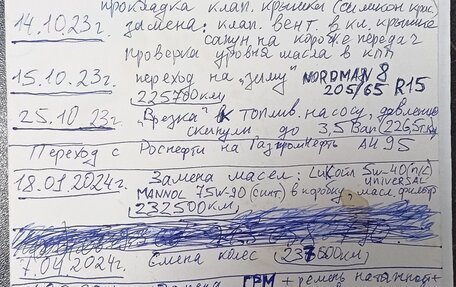 прокладка клап. крышки (силикон крас)
14.10.23г. замена: клап. вент. в кл. крышке
сапун на коробке передач
проверка уровня масла в кпп
15.10.23г. переход на „зиму" NORDMAN 8
225700км 205/65 R15
25.10 23г. „Врезка" к топлив. насосу, давление
скинули до 3,5 Бар (226,5т.км
Переход с Роснефти на Газпромнефть АИ 95
18.01.2024г. Замена масел: Lukoйл 5w-40 (п/с)
UNIVERSAL
MANNOL 75W-90 (синт) в коробку, масл. фильтр
232500км
7.04.2024г. Смена колес (237600км)
ГРМ + ремень натяжной +